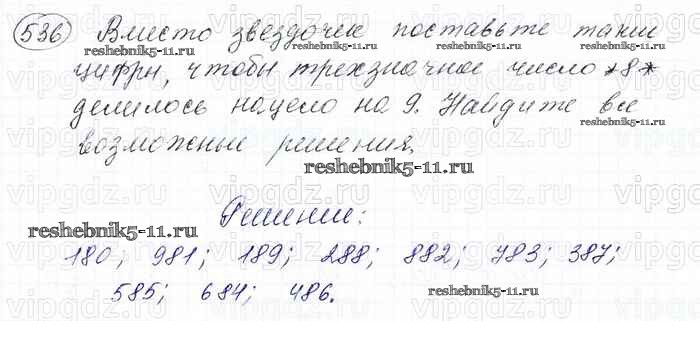 536 Вместо звездочек поставьте такие
reshebnik5-11.ru reshebnik5-11.ru
цифры, чтобы трехзначное число *8*
делилось нацело на 9. Найдите все
возможные решения.
reshebnik5-11.ru
vipgdz.ru vipgdz.ru vipgdz.ru vipgdz.ru
reshebnik5-11.ru
Решение:
180; 981; 189; 288; 882; 783; 387;
585; 684; 486.
reshebnik5-11.ru